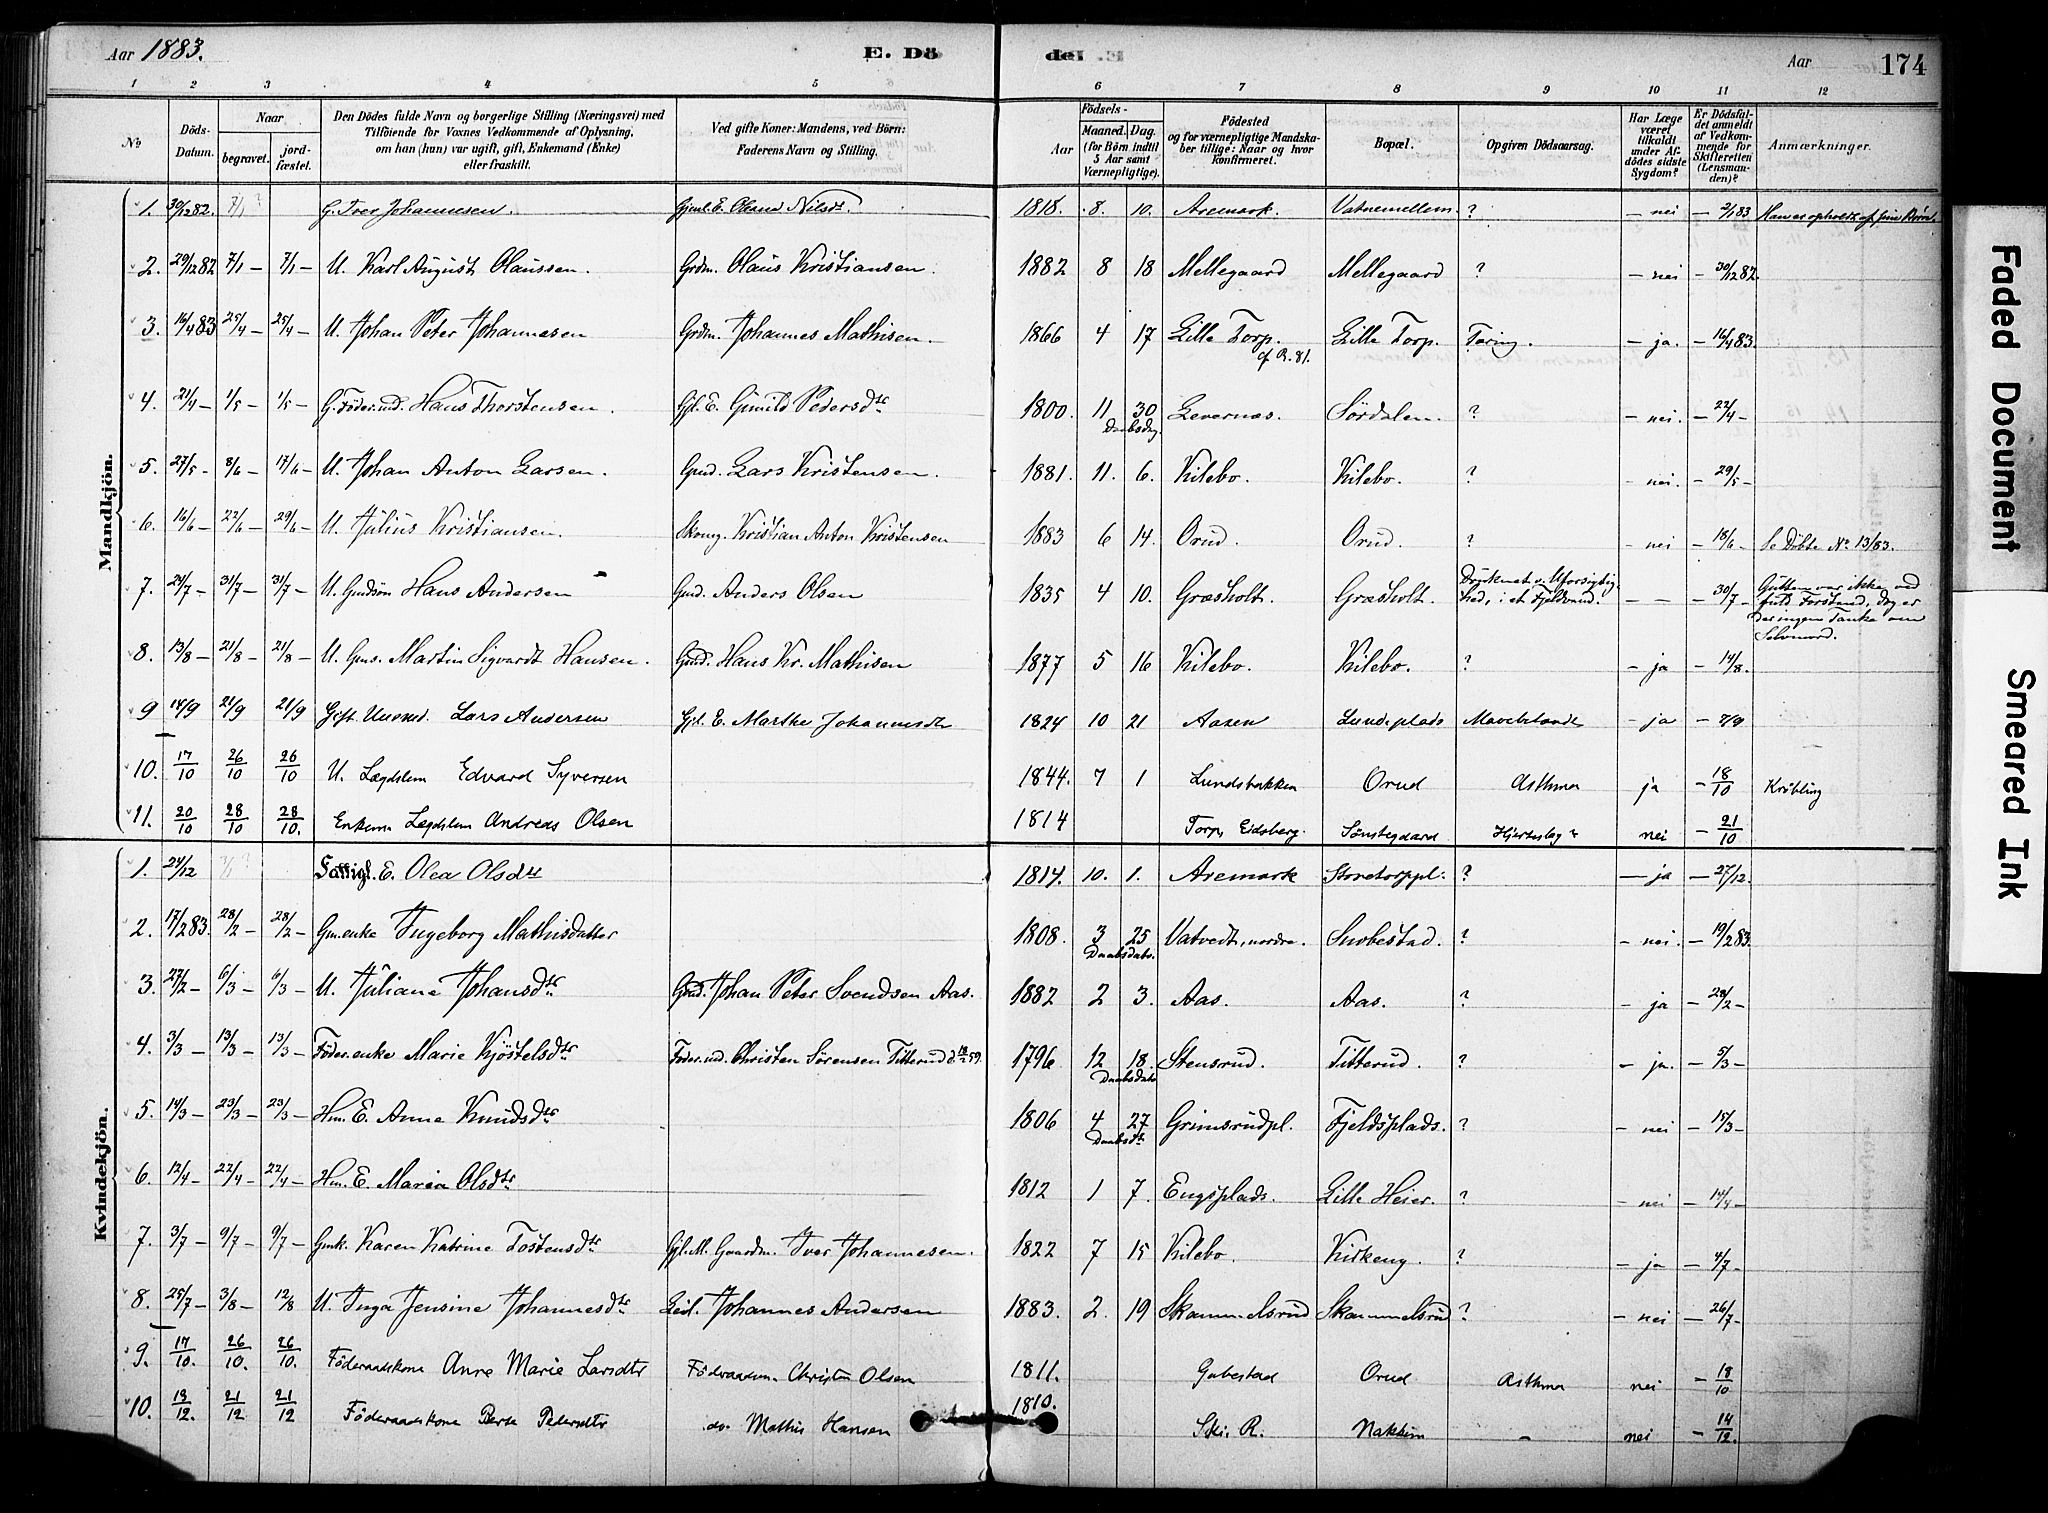 Aar 1883. E. Dö
del .E Aar 174
1 2 3 4 5 6 7 8 9 10 11 12
No Döds-Datum. Naar begravet. jordfæstet. Den Dödes fulde Navn og borgerlige Stilling (Næringsvei) med Tilföiende for Voxnes Vedkommende af Oplysning, om han (hun) var ugift, gift, Enkemand (Enke) eller fraskilt. Ved gifte Koner: Mandens, ved Börn: Faderens Navn og Stilling. Födsels- Aar Maaned. Dag. (for Börn indtil 5 Aar samt Værnepligtige). Födested og for værnepligtige Mandskaber tillige: Naar og hvor konfirmeret. Bopæl. Opgiven Dödsaarsag. Har Læge været tilkaldt under Afdödes sidste Sygdom? Er Dödsfaldet anmeldt af Vedkommende for Skifteretten (Lensmanden)? Anmærkninger.
Mandkjön.
1. 30/12 82. 7/1 ? G. Iver Johannesen. Gjml. E. Oland Nilsdtr. 1818. 8. 10. Aremark. Vatnemellem. ? — nei — 2/1 83 Han er opholdt af sine Børn.
2. 29/12 82 7/1 — 7/1 — U. Karl August Olaussen. Grdm. Olaus Kristiansen. 1882 8 18 Mellegaard Mellegaard ? — nei — 30/12 82.
3. 16/4 83 25/4 — 25/4 — U. Johan Peter Johannesen Grdm. Johannes Mathisen. 1866 4 17 Lille Torp. cf. R. 81. Lille Torp. Tæring. — ja. — 16/4 83.
4. 21/4 — 1/5 — 1/5 — G. Föder.md. Hans Thorstensen. Gfl. E. Gunild Pedersdtr 1800. 11 30 Daabsdag. Levernæs. Sördalen. ? — nei. — 22/4 —
5. 27/5 — 8/6 — 17/6 — U. Johan Anton Larsen. Gmd. Lars Kristensen. 1881. 11. 6. Kilebo. Kilebo. ? — nei. — 29/5 —
6. 16/6 — 22/6 — 29/6 — U. Julius Kristiansen. Skomg. Kristian Anton Kristensen 1883 6 14. Orud. Orud. ? — nei — 18/6 — Se Döbte No 13/83.
7. 24/7 — 31/7 — 31/7 — U. Gmdsön Hans Andersen Gmd. Anders Olsen 1835 4 10. Græsholt. Græsholt. Druknet v. Uforsigtighed, i et Fjeldvand. — — — 30/7 — Gutten var ikke ved fuld Forstand, dog er der ingen Tanke om Selvmord.
8. 13/8 — 21/8 — 21/8 — U. Gms. Martin Sigvardt Hansen. Gmd. Hans Kr. Mathisen 1877 5 16 Kilebo. Kilebo. ? — ja — 14/8.
9 14/9 21/9 21/9 Gift. Lars Andersen Gfl. E. Marthe Johannesdtr 1824 10 21 Aasen Lundeplads Mavebetændt — ja — 7/9
10. 17/10 26/10 26/10 U. Lægdslem Edvard Syversen 1844. 7 1 Lundsbakken Orud Asthma ja — 18/10 Krøbling
11. 20/10 28/10 28/10. Enkem. Lægdslem Andreas Olsen 1814 Torp, Eidsberg. Sønstegaard Hjerteslag nei — 21/10
Kvindekjön.
1. 24/12 7/1 ? Fattigl. E. Olea Olsdtr 1814. 10. 1. Aremark Storetorppl. ? — ja — 27/12.
2. 17/2 83. 28/2 — 28/2 — Gm.enke Ingeborg Mathisdatter 1808. 3 25 Daabsdato. Vatvedt, nordre. Snobestad. ? — nei. — 19/2 83.
3. 27/2 — 6/3 — 6/3 — U. Juliane Johansdtr Gmd. Johan Peter Svendsen Aas. 1882 2 3. Aas. Aas. ? — ja — 28/2 —
4. 3/3 — 13/3 — 13/3 — Föder.enke Marie Kjöstelsdtr Föder.md. Christen Sørensen Titterud 1796 12 18. Daabsdato Stensrud. Titterud. ? — ja. — 5/3 —
5. 14/3 — 23/3 — 23/3 — Hm. E. Anne Knudsdtr 1806 4 27 Daabsdt. Grimsrudpl. Fjeldsplads. ? — nei — 15/3 —
6. 12/4 — 22/4 — 22/4 — Hm. E. Maria Olsdtr 1812 1 7. Engsplads. Lille Heier. ? — nei — 14/4 —
7. 3/7 — 9/7 — 9/7 — Gmk. Karen Katrine Tostensdtr Gfl. M. Gaardm. Iver Johannesen. 1822 7 15 Kilebo. Kirkeng. ? — ja — 4/7 —
8. 25/7 — 3/8 — 12/8 U. Inga Jensine Johannesdtr Leil. Johannes Andersen 1883. 2. 19 Skammelsrud Skammelsrud ? — nei — 26/7 —
9. 17/10. 26/10. 26/10. Föderaadskone Anne Marie Larsdtr Föderaadsm. Christen Olsen 1811. Gabestad Orud Asthma nei — 18/10
10. 13/12. 21/12 21/12 Föderaadskone Berte Pedersdtr do. Mathis Hansen 1810. Ski. R. Nakkim – nei — 14/12.
Faded Document
Smeared Ink